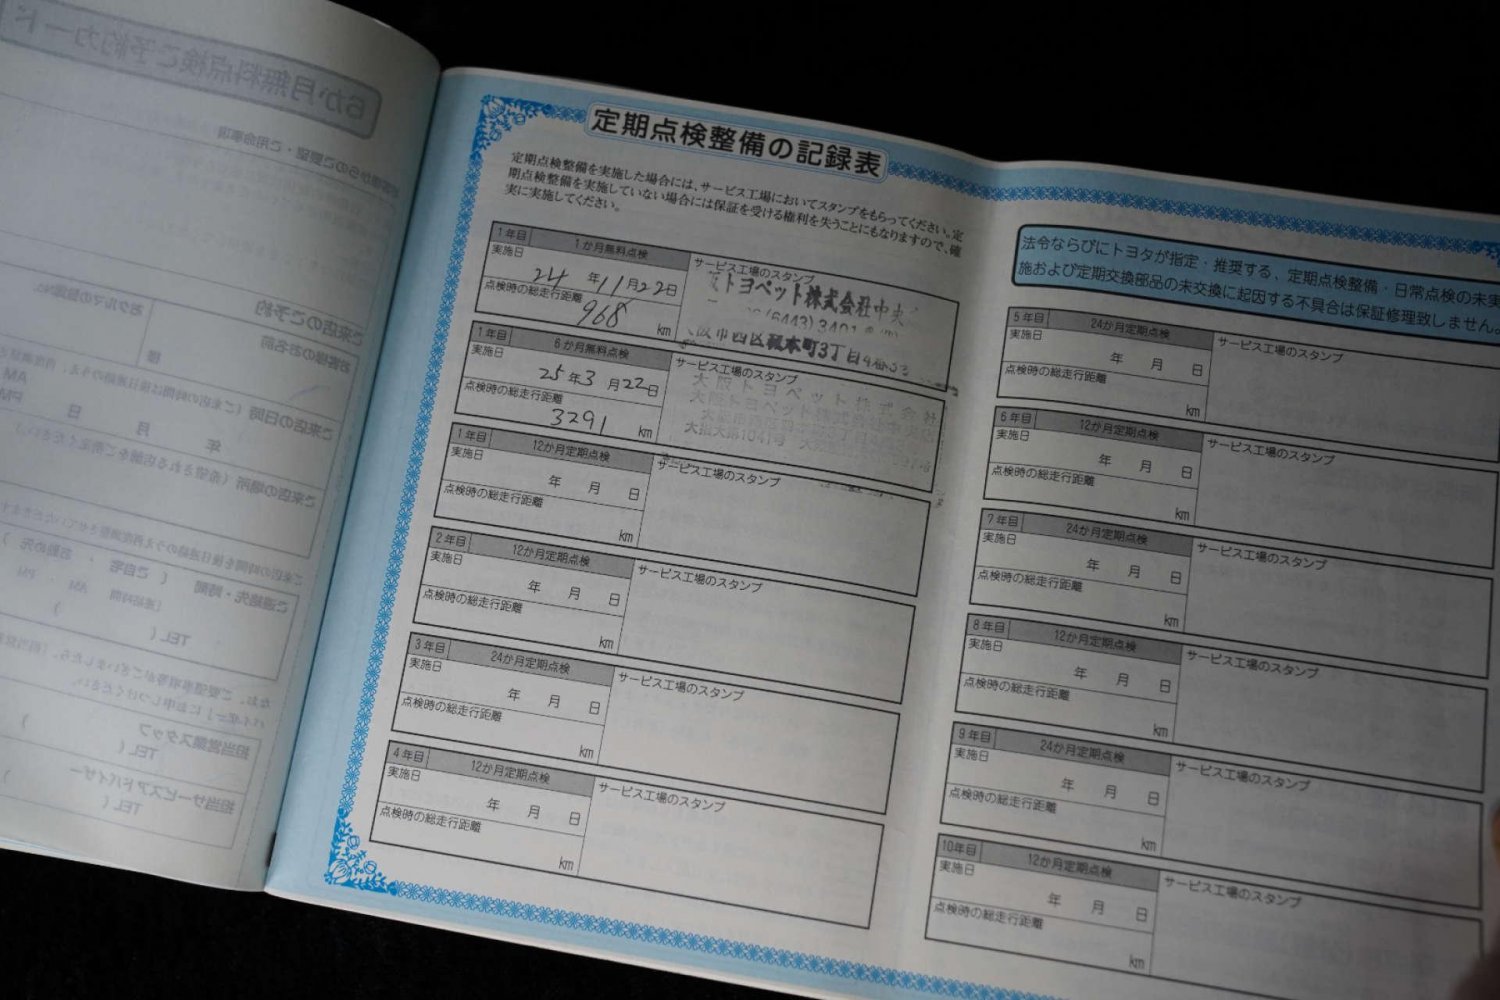 6か月無料点検ご予約カード
お客様からのご要望・ご用命事項
ご来店のご予約
お客様のお名前
様
おクルマの登録No.
AM
PM
年 月 日
TEL (
担当営業スタッフ
TEL (
担当サービスアドバイザー
TEL (
定期点検整備の記録表
定期点検整備を実施した場合には、サービス工場においてスタンプをもらってください。定
期点検整備を実施していない場合には保証を受ける権利を失うことにもなりますので、確
実に実施してください。
1年目 1か月無料点検
実施日
24年11月22日
点検時の総走行距離
968 km
サービス工場のスタンプ
トヨペット株式会社中央
(6443)3401
阪市西区靱本町3丁目4番
1年目 6か月無料点検
実施日
25年3月22日
点検時の総走行距離
3291 km
サービス工場のスタンプ
大阪トヨペット株式会社
大阪トヨペット株式会社
1年目 12か月定期点検
実施日
年 月 日
点検時の総走行距離
km
サービス工場のスタンプ
2年目 12か月定期点検
実施日
年 月 日
点検時の総走行距離
km
サービス工場のスタンプ
3年目 24か月定期点検
実施日
年 月 日
点検時の総走行距離
km
サービス工場のスタンプ
4年目 12か月定期点検
実施日
年 月 日
点検時の総走行距離
km
サービス工場のスタンプ
法令ならびにトヨタが指定・推奨する、定期点検整備・日常点検の未実
施および定期交換部品の未交換に起因する不具合は保証修理致しません。
5年目 24か月定期点検
実施日
年 月 日
点検時の総走行距離
km
サービス工場のスタンプ
6年目 12か月定期点検
実施日
年 月 日
点検時の総走行距離
km
サービス工場のスタンプ
7年目 24か月定期点検
実施日
年 月 日
点検時の総走行距離
km
サービス工場のスタンプ
8年目 12か月定期点検
実施日
年 月 日
点検時の総走行距離
km
サービス工場のスタンプ
9年目 24か月定期点検
実施日
年 月 日
点検時の総走行距離
km
サービス工場のスタンプ
10年目 12か月定期点検
実施日
年 月 日
点検時の総走行距離
km
サービス工場のスタンプ